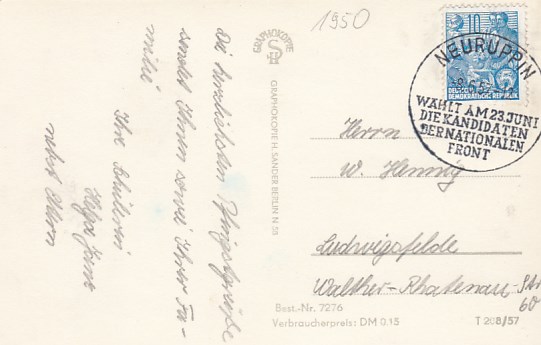 1950
Die herzlichsten Pfingstgrüße
sendet Ihnen sowie Ihrer Fa-
milie
Ihre Schülerin
Helga
nebst Eltern
GRAPHOKOPIE
GRAPHOKOPIE H. SANDER BERLIN N 55
10
DEUTSCHE
DEMOKRATISCHE REPUBLIK
NEURUPPIN
WÄHLT AM 23. JUNI
DIE KANDIDATEN
DER NATIONALEN
FRONT
Herrn
W. Hennig
Ludwigsfelde
Walther-Rhatenau-Str
60
Best.-Nr. 7276
Verbraucherpreis: DM 0.15
T 208/57